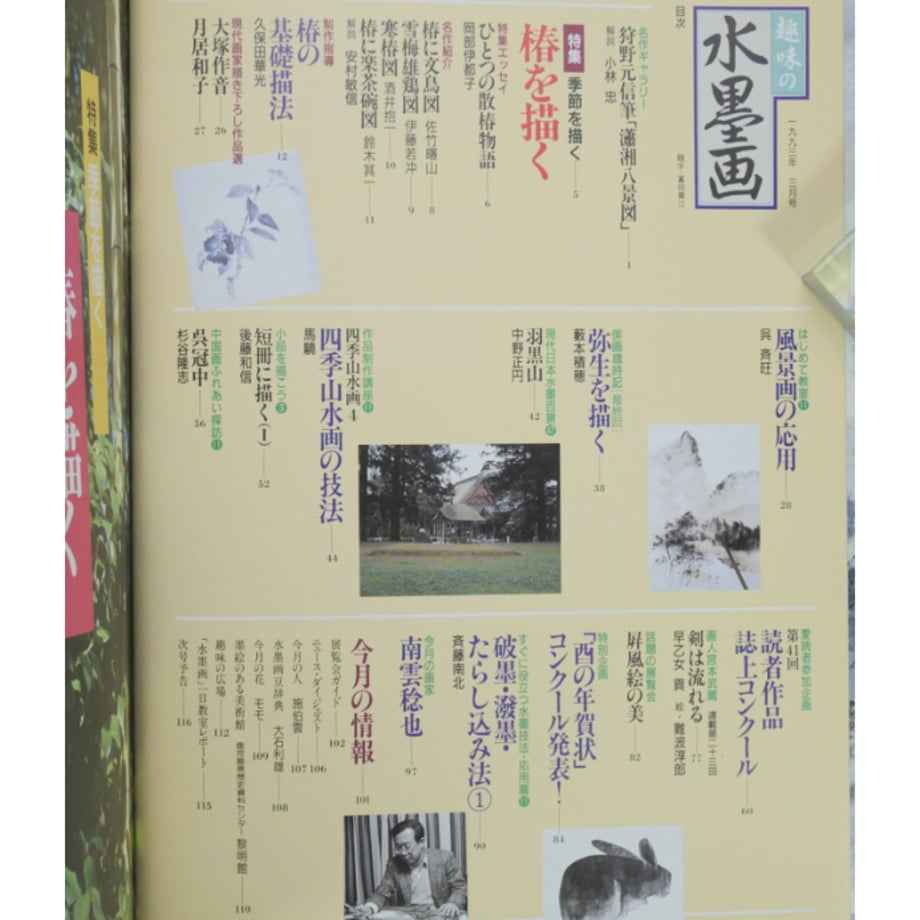 趣味の
水墨画
一九九三年 三月号
題字・富田華江
目次
名作ギャラリー
狩野元信筆「瀟湘八景図」 1
解説 小林 忠
特集 季節を描く 5
椿を描く
特集エッセイ
ひとつの散椿物語 6
岡部伊都子
名作紹介
椿に文鳥図 佐竹曙山 8
雪梅雄鶏図 伊藤若冲 9
寒椿図 酒井抱一 10
椿に楽茶碗図 鈴木其一 11
解説 安村敏信
制作指導
椿の
基礎描法 12
久保田華光
現代画家描き下ろし作品選
大塚作音 26
月居和子 27
はじめて教室⑪
風景画の応用 28
呉 斉旺
俳画歳時記〔最終回〕
弥生を描く 38
藪本積穂
現代日本水墨百景㊼
羽黒山 42
中野正円
作品制作講座⑪
四季山水画4
四季山水画の技法 44
馬驍
小品を描こう③
短冊に描く(Ⅰ) 52
後藤和信
中国画ふれあい探訪⑪
呉冠中 56
杉谷隆志
愛読者参加企画
第41回
読者作品
誌上コンクール 60
画人宮本武蔵 連載第二十三回
剣は流れる 77
早乙女 貢 絵・難波淳郎
話題の展覧会
屏風絵の美 82
特別企画
「酉の年賀状」
コンクール発表! 84
すぐに役立つ水墨技法・応用篇⑪
破墨・潑墨・
たらし込み法① 90
斉藤南北
今月の画家
南雲稔也 97
今月の情報 101
展覧会ガイド 102
ニュース・ダイジェスト 106
今月の人 施伯雲 107
水墨画豆辞典 大石利雄 108
今月の花 モモ 109
墨絵のある美術館 鹿児島県歴史資料センター黎明館 110
趣味の広場 112
「水墨画」一日教室レポート 115
次号予告 116
特集 季節を描く
椿を描く